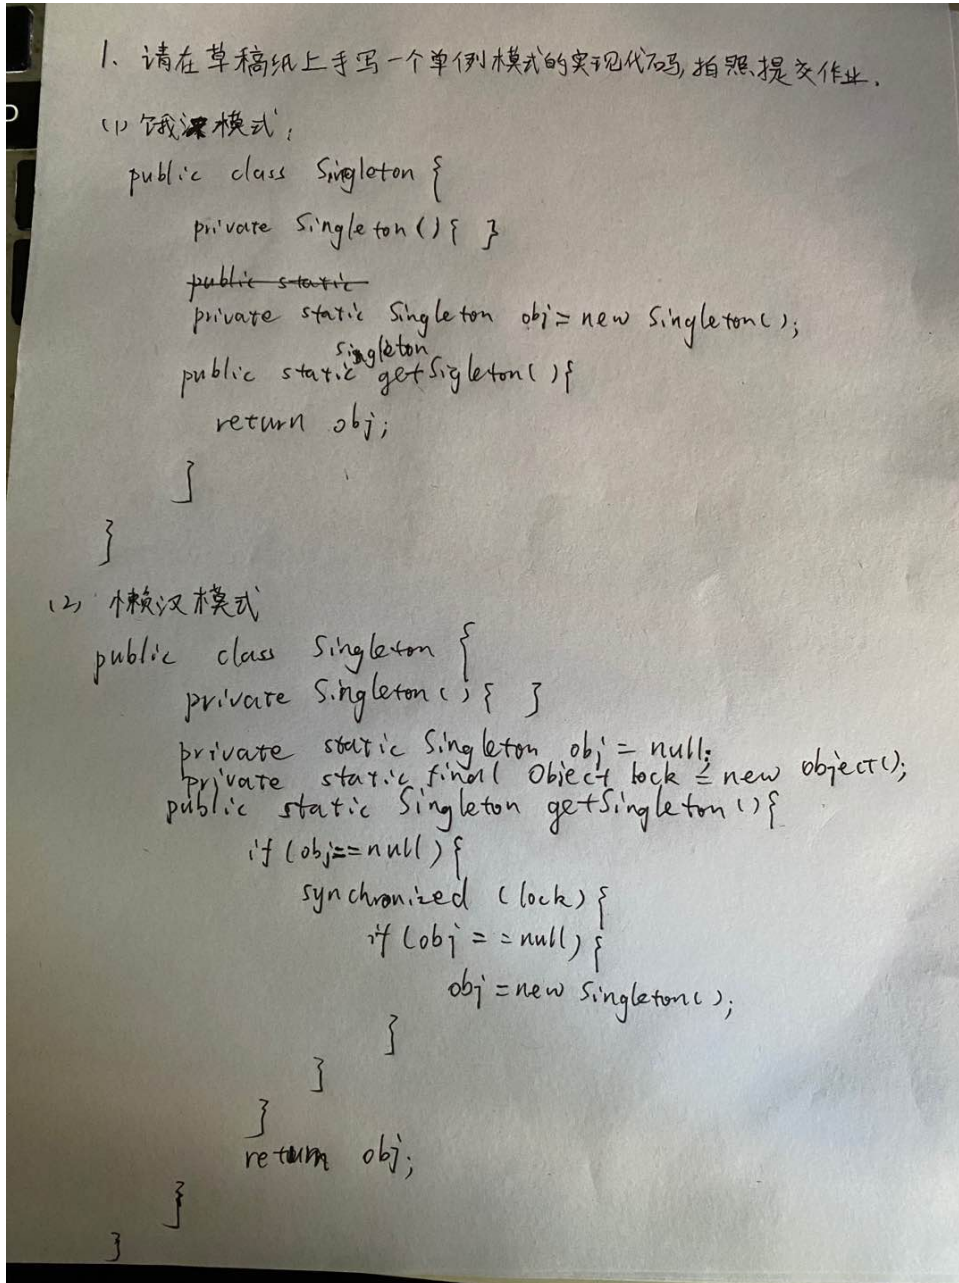 1、请在草稿纸上手写一个单例模式的实现代码,拍照提交作业.
(1) 饿汉模式:
public class Singleton {
private Singleton(){ }
public static
private static Singleton obj = new Singleton();
public static Singleton getSigleton(){
return obj;
}
}
(2) 懒汉模式
public class Singleton {
private Singleton(){ }
private static Singleton obj = null;
private static final Object lock = new object();
public static Singleton getSingleton(){
if (obj==null){
synchronized (lock){
if (obj==null){
obj = new Singleton();
}
}
}
return obj;
}
}